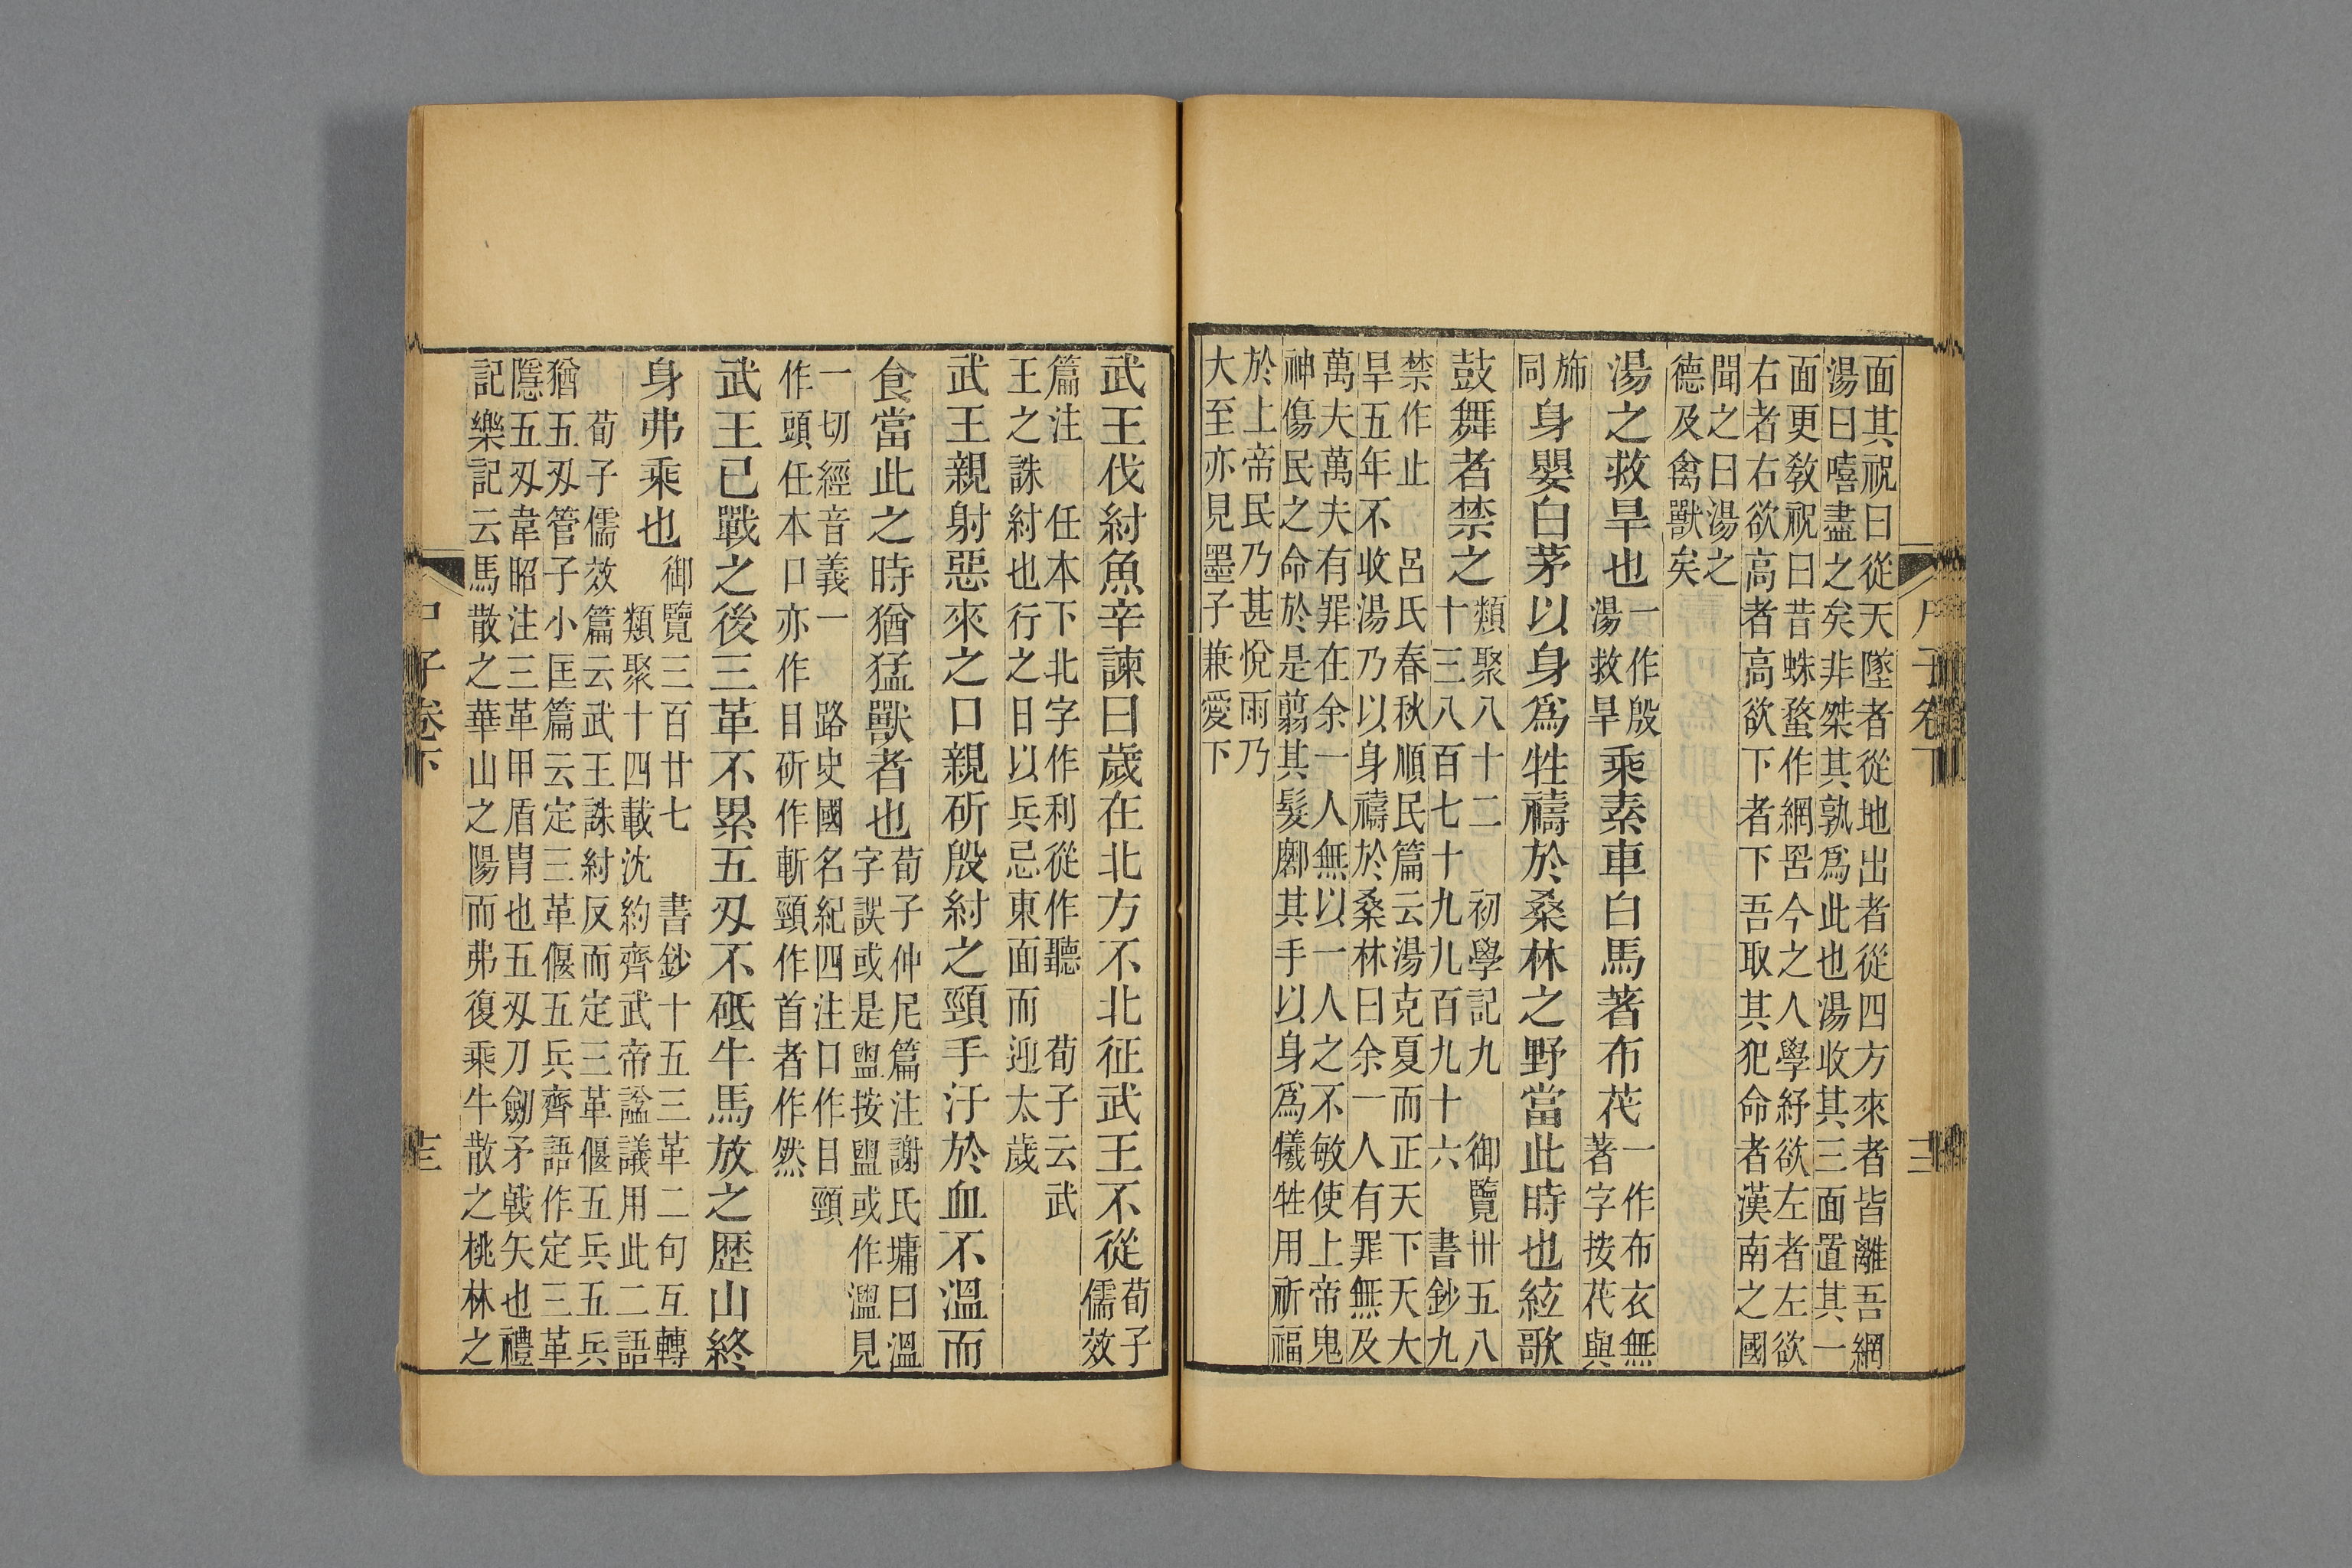 面其祝曰從天墜者從地出者從四方來者皆離吾網
湯曰嘻盡之矣非桀其孰為此也湯收其三面置其一
面更教祝曰昔蛛蝥作網罟今之人學紓欲左者左欲
右者右欲高者高欲下者下吾取其犯命者漢南之國
聞之曰湯之
德及禽獸矣
湯之救旱也
一作殷
湯救旱
乘素車白馬著布衣
一作布衣無
著字按茂與
旆
同
身嬰白茅以身爲牲禱於桑林之野當此時也絃歌
鼓舞者禁之
類聚八十二　初學記九　御覽卅五八
十三八百七十九九九百九十六　書鈔九
禁作止　呂氏春秋順民篇云湯克夏而正天下天大
旱五年不收湯乃以身禱於桑林曰余一人有罪無及
萬夫萬夫有罪在余一人無以一人之不敏使上帝鬼
神傷民之命於是翦其髮䣛其手以身爲犧牲用祈福
於上帝民乃甚悅雨乃
大至亦見墨子兼愛下
子卷下
武王伐紂魚辛諫曰歲在北方不北征武王不從
荀子
儒效
篇注　任本下北字作利從作聽　荀子云武
王之誅紂也行之日以兵忌東面而迎太歲
武王親射惡來之口親斫殷紂之頸手汙於血不溫而
食當此之時猶猛獸者也
荀子仲尼篇注謝氏墉曰溫
字誤或是盥按盥或作溫見
一切經音義一　路史國名紀四注口作目頸
作頭任本口亦作目斫作斬頸作首者作然
武王已戰之後三革不累五刃不砥牛馬放之歷山終
身弗乘也
御覽三百廿七　書鈔十五三革二句互轉
類聚十四載沈約齊武帝諡議用此二語
猶　荀子儒效篇云武王誅紂反而定三革偃五兵五兵
五刃管子小匡篇云定三革偃五兵齊語作定三革
隱五刃韋昭注三革甲盾冑也五刃刀劒矛戟矢也禮
記樂記云馬散之華山之陽而弗復乘牛散之桃林之
子卷下